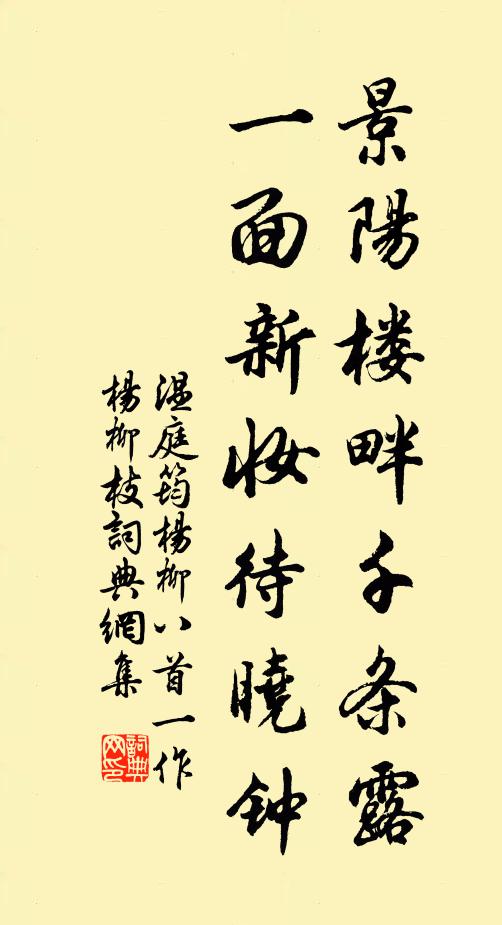 景陽楼畔千条露
一面新妝待曉钟
温庭筠楊柳八首一作
楊柳枝詞典網集
詞典
网印